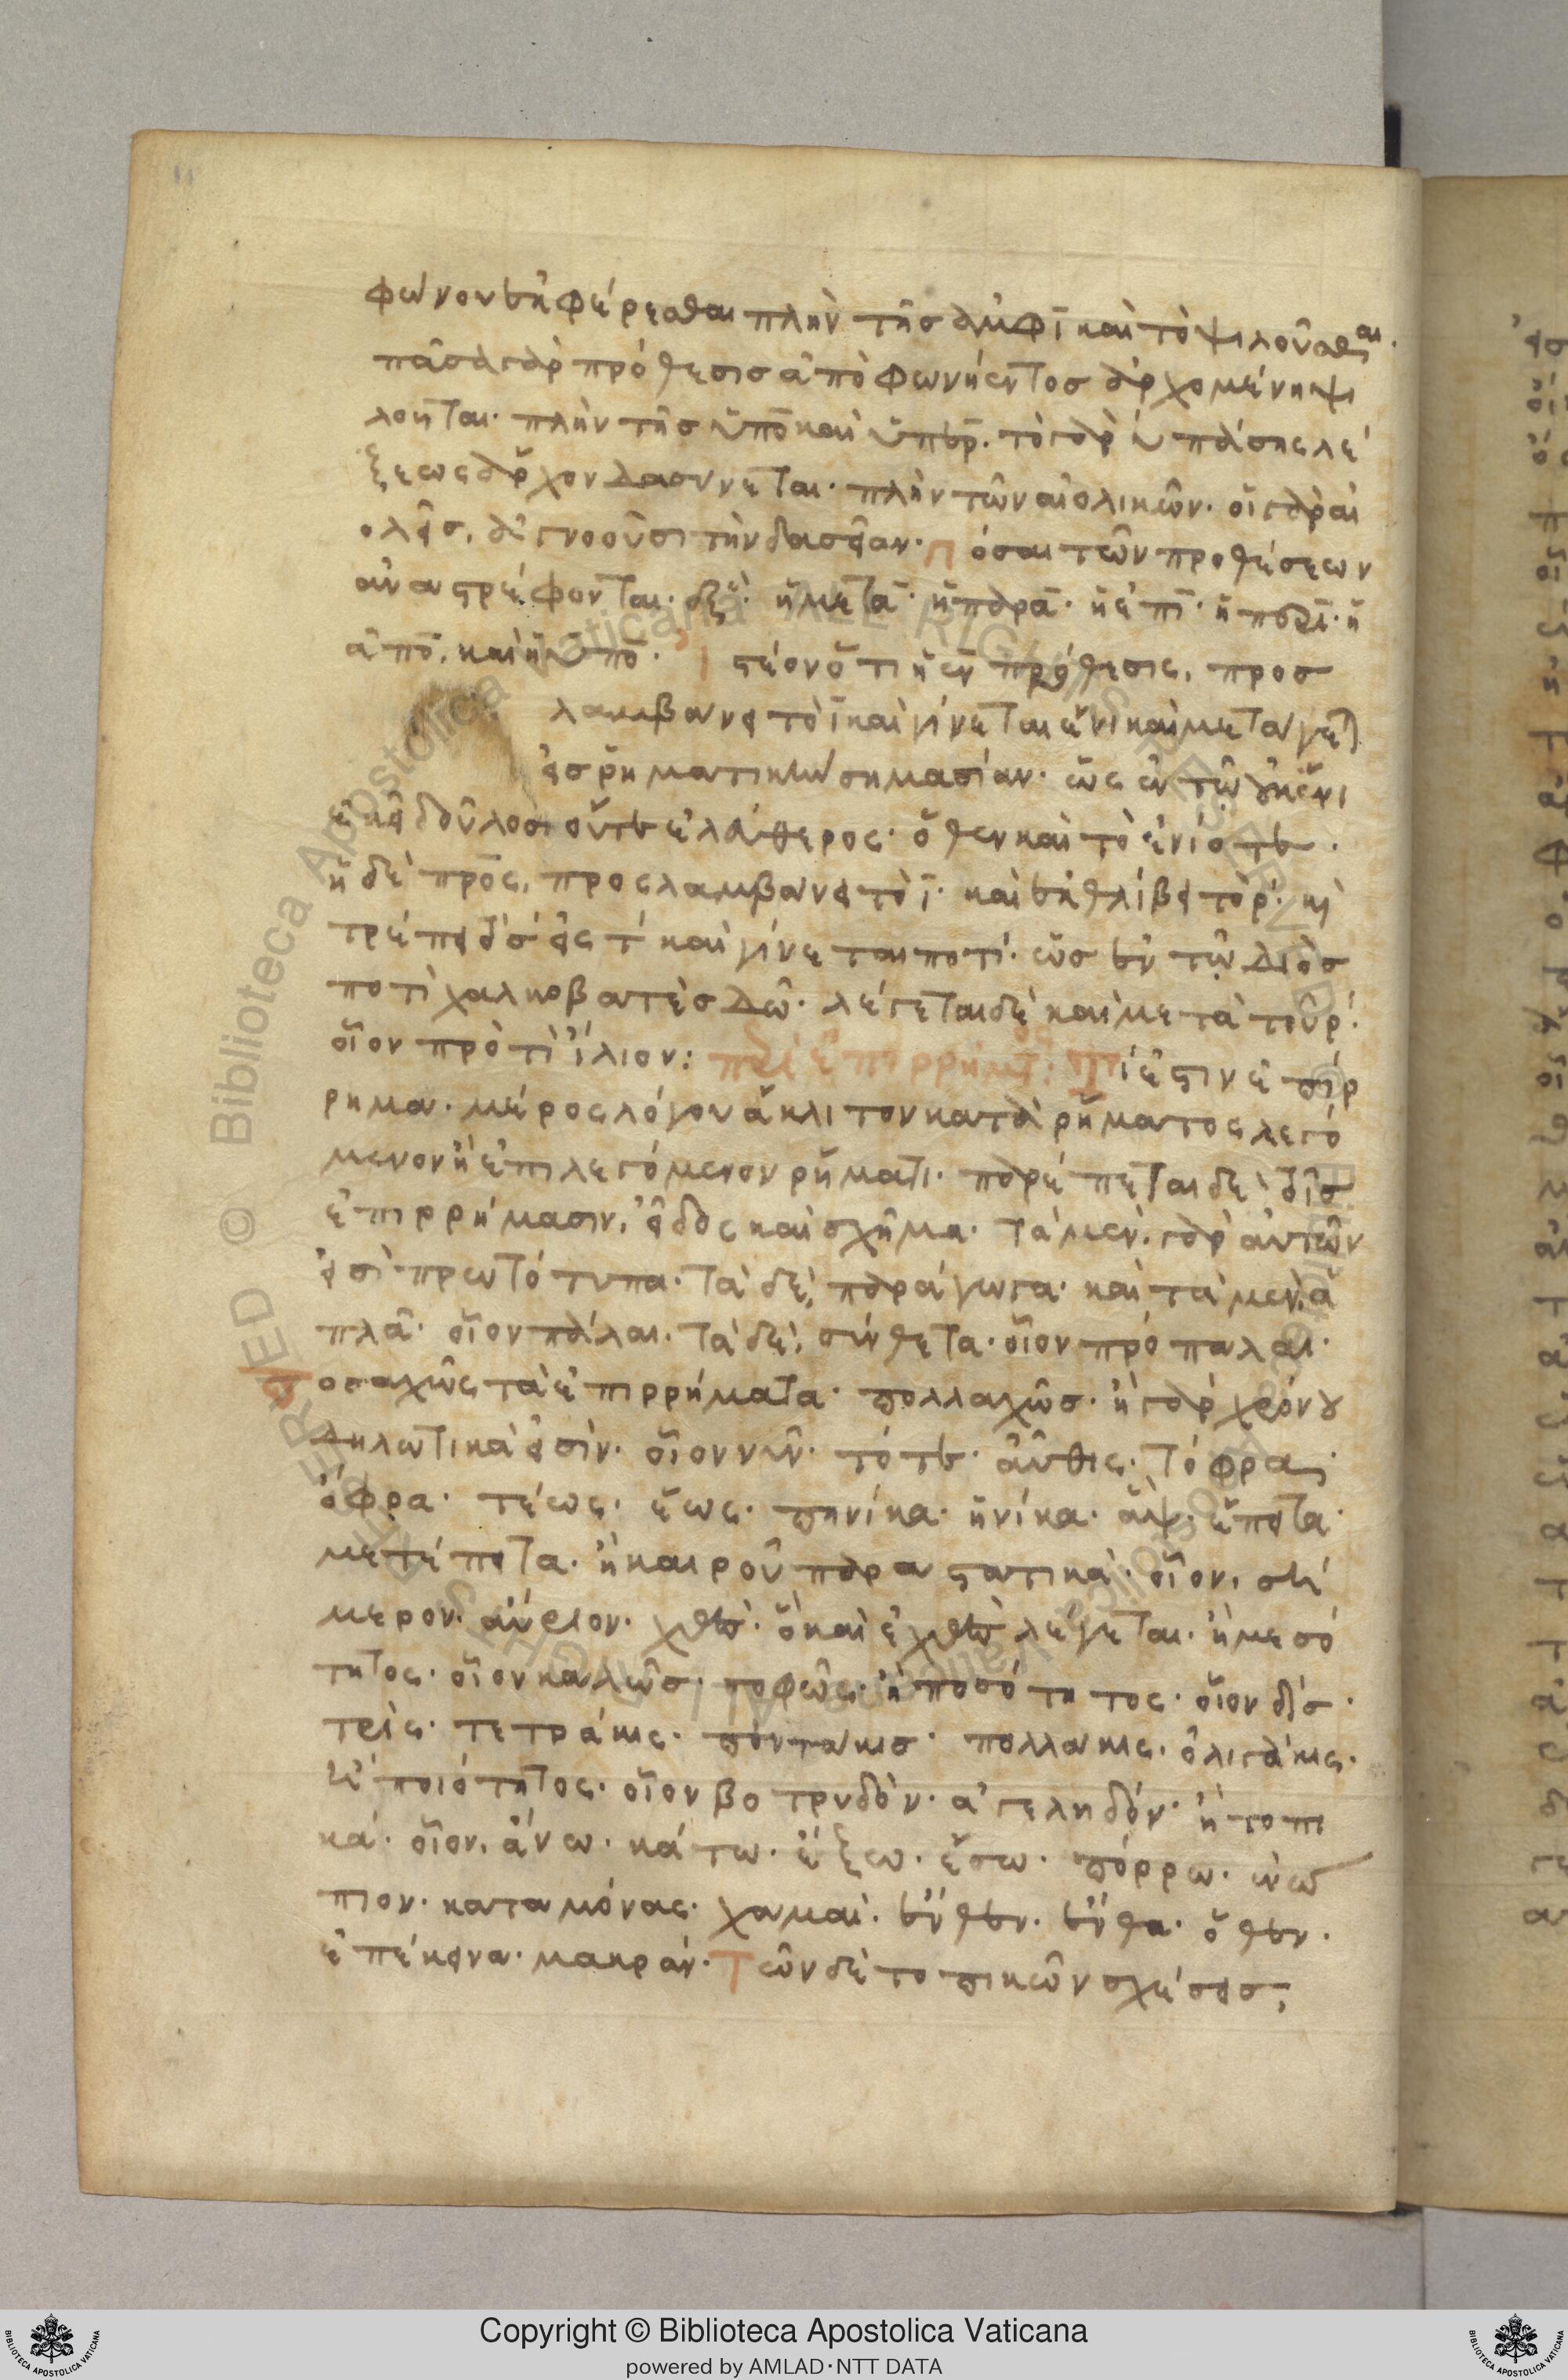 φωνον ἐκφέρεσθαι πλὴν τῆς ἀμφὶ καὶ τὸ ψιλοῦσθαι.
πᾶσα γὰρ πρόθεσις ἀπὸ φωνήεντος ἀρχομένη ψι
λοῦται· πλὴν τῆς ὑπὸ καὶ ὑπέρ. τὸ γὰρ υ πάσης λέ
ξεως ἄρχον δασύνεται· πλὴν τῶν αἰολικῶν. οἱ γὰρ αἰ
ολεῖς, ἀγνοοῦσι τὴν δασεῖαν· π όσαι τῶν προθέσεων
ἀναστρέφονται· ἕξ· ἡ μετὰ· ἡ παρὰ· ἡ ἐπὶ· ἡ περὶ· ἡ
ἀπὸ, καὶ ἡ ὑπὸ· ἰστέον ὅτι ἡ ἐν πρόθεσις, προσ
λαμβάνει τὸ ῑ καὶ γίνεται ἐνὶ καὶ μετάγετ(αι)
εἰς ῥηματικὴν σημασίαν· ὡς ἐν τῷ οὐκ ἔνι
ἐκεῖ δοῦλος οὔτε ἐλεύθερος· ὅθεν καὶ τὸ ἐνίοτε·
ἡ δὲ πρός, προσλαμβάνει τὸ ῑ· καὶ ἐκθλίβει τὸ ρ· κ(αὶ)
τρέπει τὸ σ εἰς τ καὶ γίνεται ποτί· ὡς ἐν τῷ Διὸς
ποτὶ χαλκοβατὲς δῶ· λέγεται δὲ καὶ μετὰ τοῦ ρ·
οἷον προτὶ ἴλιον: περὶ ἐπιρρήματ(ος): τί ἐστιν ἐπίρ
ρημα· μέρος λόγου ἄκλιτον κατὰ ῥήματος λεγό
μενον ἢ ἐπιλεγόμενον ῥήματι· παρέπεται δὲ τοῖς
ἐπιρρήμασιν, εἶδος καὶ σχῆμα· τὰ μὲν γὰρ αὐτῶν
εἰσὶ πρωτότυπα· τὰ δὲ, παράγωγα· καὶ τὰ μὲν ἁ
πλᾶ· οἷον πάλαι. τὰ δὲ, σύνθετα· οἷον πρόπαλαι·
ποσαχῶς τὰ ἐπιρρήματα· πολλαχῶς· ἢ γὰρ χρόνου
δηλωτικά εἰσιν· οἷον νῦν· τότε· αὖθις· τόφρα·
ὄφρα· τέως· ἕως· πηνίκα· ἡνίκα· ἄψ· ἔπειτα·
μετέπειτα· ἢ καιροῦ παραστατικά· οἷον, σή
μερον· αὔριον· χθὲς· ὃ καὶ ἐχθὲς λέγεται· ἢ μεσό
τητος· οἷον καλῶς· σοφῶς· ἢ ποσότητος· οἷον δίς·
τρίς· τετράκις· πεντάκις· πολλάκις· ὀλιγάκις·
ἢ ποιότητος· οἷον βοτρυδόν· ἀγεληδόν· ἢ τοπι
κά· οἷον, ἄνω· κάτω· ἔξω· ἔσω· πόρρω· ἐνώ
πιον· καταμόνας· χαμαί· ἔνθεν· ἔνθα· ὅθεν·
ἐπέκεινα· μακράν· Τῶν δὲ τοπικῶν σχέσεις;